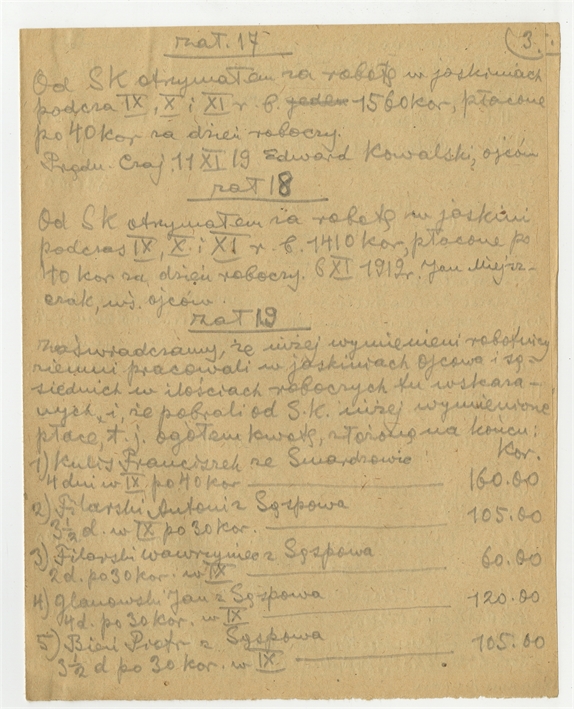 3.
zał. 17
Od SK otrymałem za robotę w jaskiniach
podcza IX, X i XI r. b. jeden 1560 kor, płacone
po 40 kor za dzień roboczy.
Prądn. Czaj. 11 XI 19 Edward Kowalski, ojców
zał 18
Od SK otrymałem za robotę w jaskini
podczas IX, X i XI r. b. 1410 kor, płacone po
40 kor za dzień roboczy. 6 XI 1919 r. Jan
czak, wś. ojców.
zał 19
zaświadczamy, że niżej wymienieni robotnicy
ziemni pracowali w jaskiniach Ojcowa i są-
siednich w ilościach roboczych tu wskaza-
nych, i, że pobrali od S.K. niżej wymienione
płace, t. j. ogółem kwotę, złożoną na końcu:
Kor.
1) Kulis Franciszek ze Smardzowic
4 dni w IX po 40 kor 160.00
2) Filarski Antoni z Sąspowa
3½ d. w IX po 30 kor. 105.00
3) Filarski Wawrzyniec z Sąspowa
2 d. po 30 kor. w IX 60.00
4) Glanowski Jan z Sąspowa
4 d. po 30 kor. w IX 120.00
5) Bień Piotr z Sąspowa
3½ d po 30 kor. w IX. 105.00